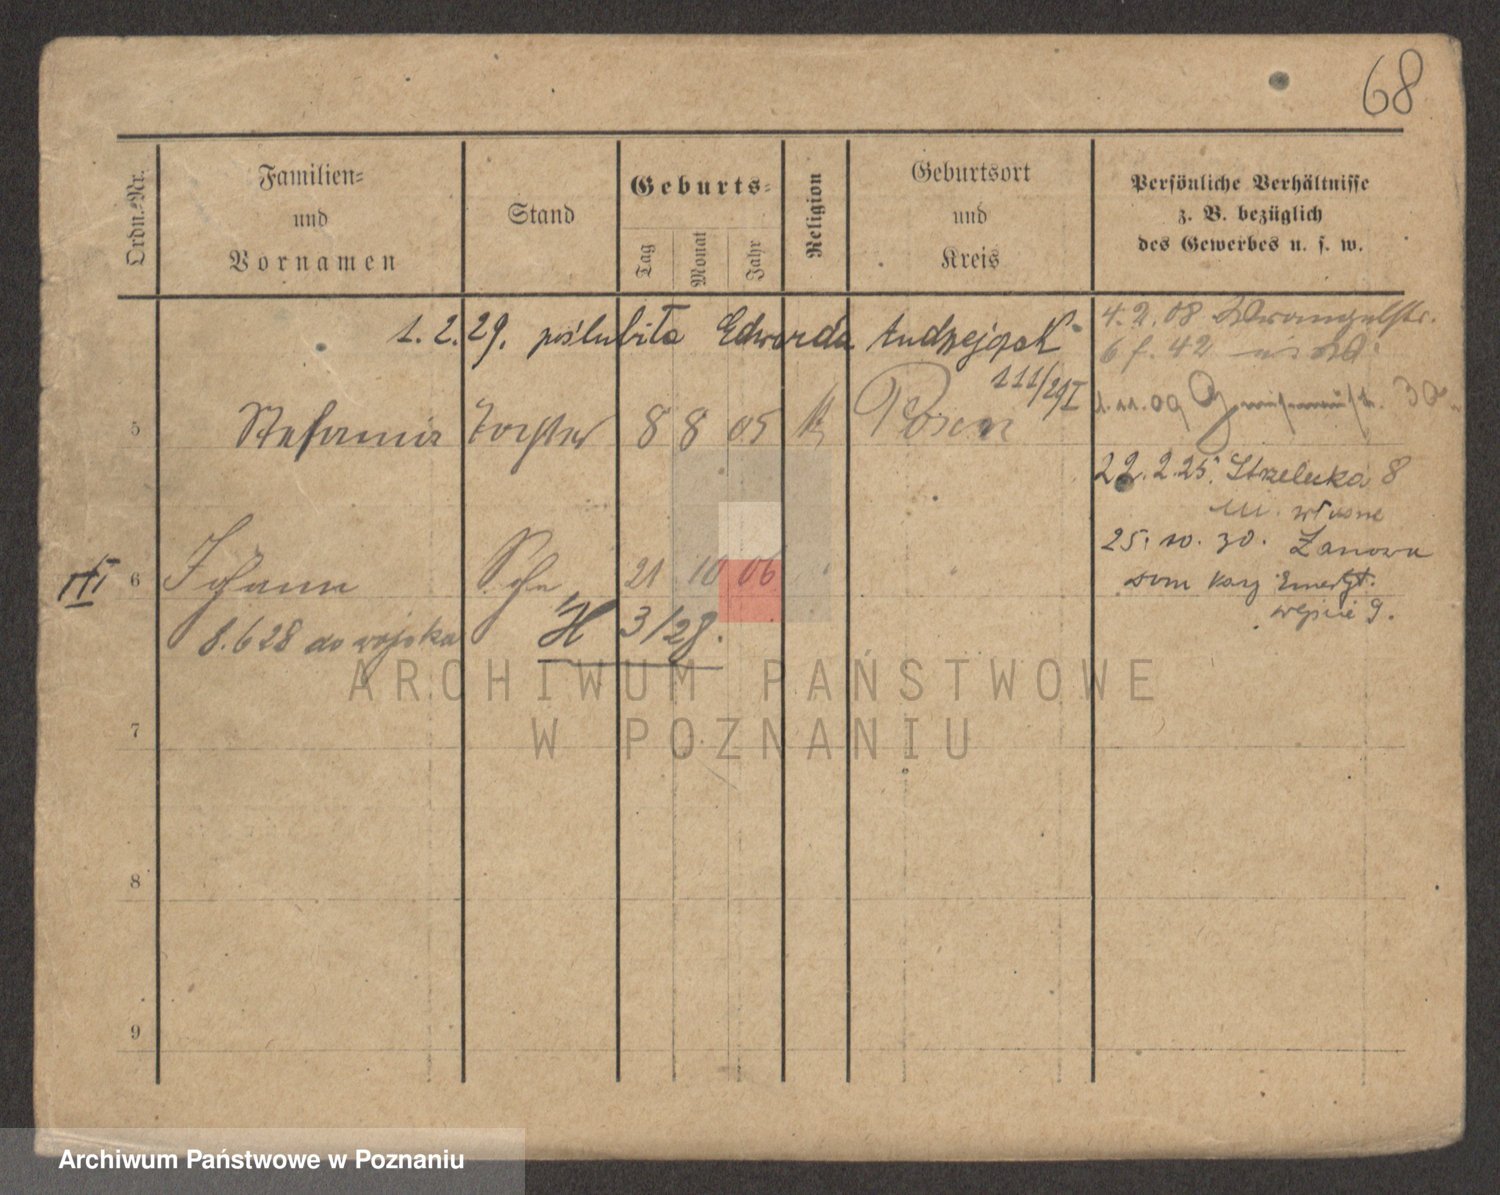 68
Ordn.-Nr.
Familien-
und
Vornamen
Stand
Geburts-
Tag
Monat
Jahr
Religion
Geburtsort
und
Kreis
Persönliche Verhältnisse
z. B. bezüglich
des Gewerbes u. s. w.
1. 2. 29. poślubiła Edwarda Andrzejczak
111/29 I
5 Stefania Tochter 8 8 05 k Posen
6 Johann Sohn 21 10 06
III
8.6 28 do wojska
3/28.
7
8
9
4.2.08 Wrangelstr.
6 f. 42
1.11.09 30
22.2.25. Strzelecka 8
m. własne
25.10.30. Żanowa
dom kasy Emeryt.
wejście 9.
ARCHIWUM PAŃSTWOWE
W POZNANIU
Archiwum Państwowe w Poznaniu